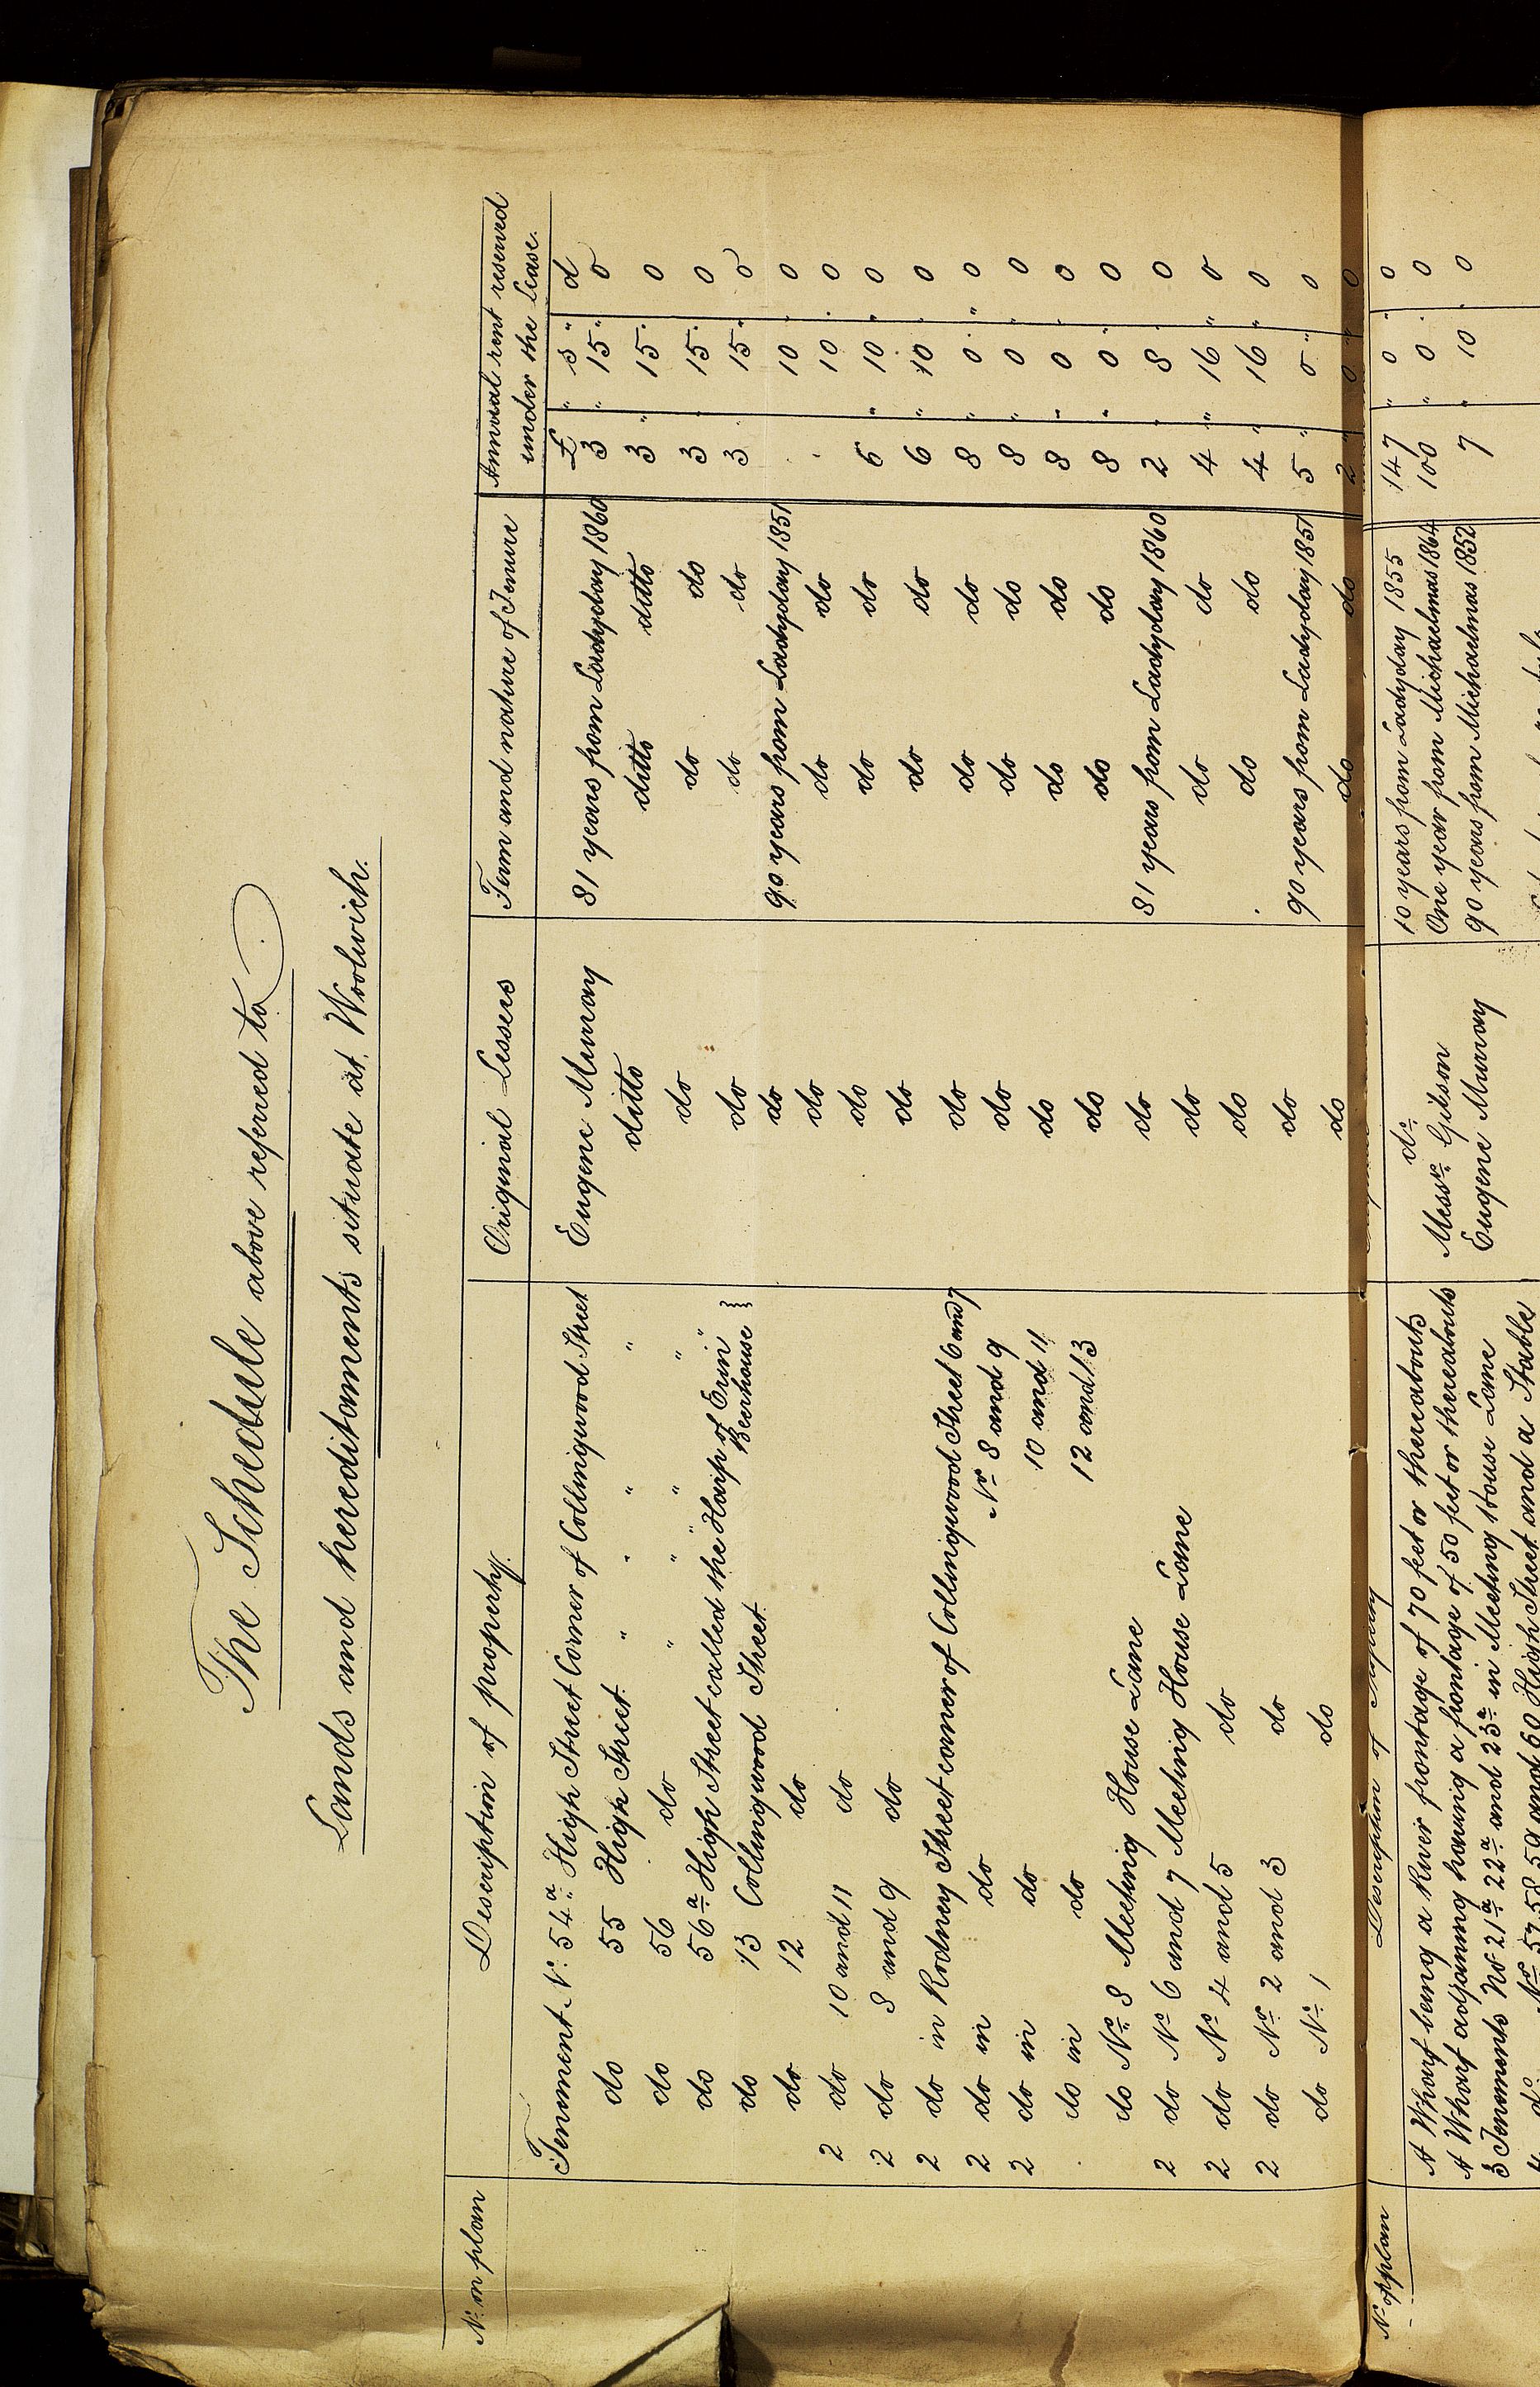 The Schedule above referred to.
Lands and hereditaments situate at Woolwich.
No. on plan | Description of property. | Original Lessees | Term and nature of Tenure | Annual rent reserved under the Lease.
£ " s " d
Tenement No. 54a High Street Corner of Collingwood Street | Eugene Murray | 81 years from Ladyday 1860 | 3 " 15 " 0
do 55 High Street " " " " | ditto | ditto ditto | 3 " 15 . 0
do 56 do " " " " | do | do do | 3 " 15 . 0
do 56a High Street called the "Harp of Erin" Beerhouse | do | do do | 3 " 15 " 0
do 13 Collingwood Street | do | 90 years from Ladyday 1851 | 10 " 0
do 12 do | do | do do | 10 . 0
2 do 10 and 11 do | do | do do | 6 " 10 " 0
2 do 8 and 9 do | do | do do | 6 " 10 . 0
2 do in Rodney Street corner of Collingwood Street 6 and 7 | do | do do | 8 " 0 " 0
2 do in do Nos 8 and 9 | do | do do | 8 " 0 " 0
2 do in do 10 and 11 | do | do do | 8 " 0 " 0
do in do 12 and 13 | do | do do | 8 " 0 " 0
do No. 8 Meeting House Lane | do | 81 years from Ladyday 1860 | 2 " 8 . 0
2 do Nos 6 and 7 Meeting House Lane | do | do do | 4 " 16 " 0
2 do Nos 4 and 5 do | do | do do | 4 " 16 " 0
2 do Nos 2 and 3 do | do | 90 years from Ladyday 1851 | 5 " 0 " 0
do No. 1 do | do | do do | 2 " 0 " 0
No. of plan | Description of Property
A Wharf being a River frontage of 70 feet or thereabouts | do. | 10 years from Ladyday 1855 | 147 " 0 " 0
A Wharf adjoining having a frontage of 50 feet or thereabouts | Messrs. Gilson | One year from Michaelmas 1864 | 100 " 0 . 0
3 Tenements No 21a 22a and 23a in Meeting House Lane | Eugene Murray | 90 years from Michaelmas 1852 | 7 " 10 . 0
4 do. Nos 57 58 59 and 60 High Street and a Stable